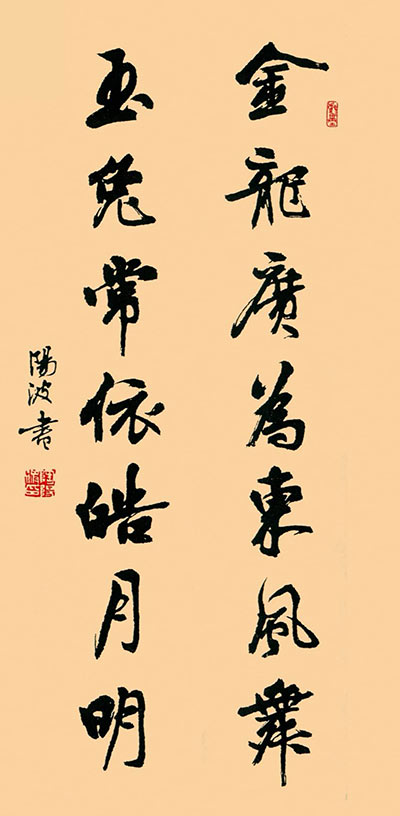 金龍廣為東風舞
玉兔常依皓月明
陽波書